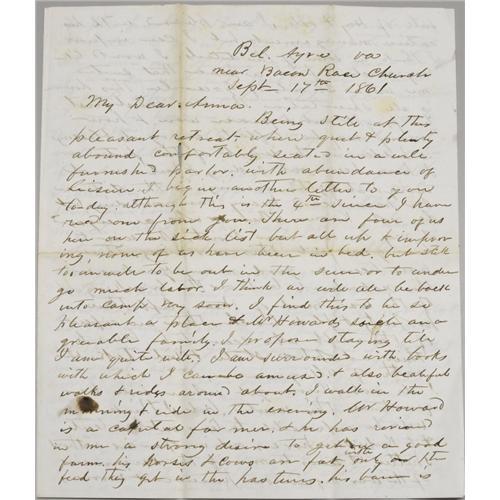 Bel. Ayre va
near Bacon Race Church
Sept 17th 1861
My Dear Anna.
Being still at this
pleasant retreat, where quiet & plenty
abound, comfortably seated in a well
furnished parlor, with abundance of
leisure. I begin another letter to you
today, although this is the 4th since I have
recd one from you. There are four of us
here on the sick list but all up & improv
ing, none of us have been in bed, but still
to unwell to be out in the sun or to under
go much labor. I think we will all be back
into camp very soon. I find this to be so
pleasant a place & Mr Howards such an a
greeable family, I propose staying till
I am quite well. I am surrounded with books
with which I can be amused & also beautiful
walks & rides around about. I walk in the
morning & ride in the evening. Mr Howard
is a capital farmer, & he has revived
in me a strong desire to get on a good
farm. his horses & cows are fat with only the
feed they get in the pastures. his barn is